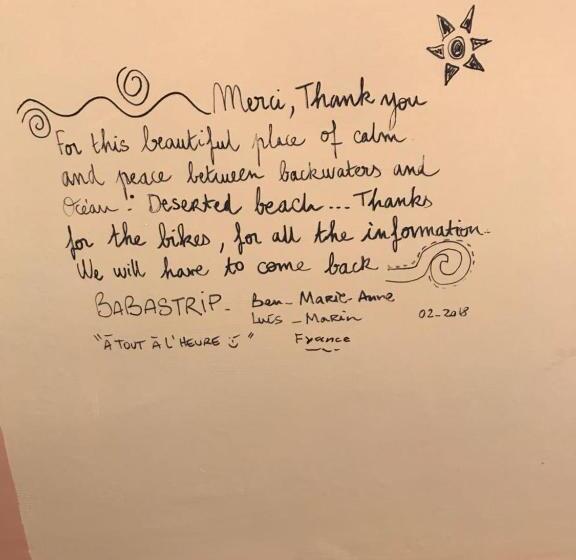 Merci, Thank you
For this beautiful place of calm
and peace between backwaters and
Océan! Deserted beach... Thanks
for the bikes, for all the information.
We will have to come back
BABASTRIP_ Ben_Marie-Anne
Luis_Marin 02-2018
"À TOUT À L'HEURE :)" France